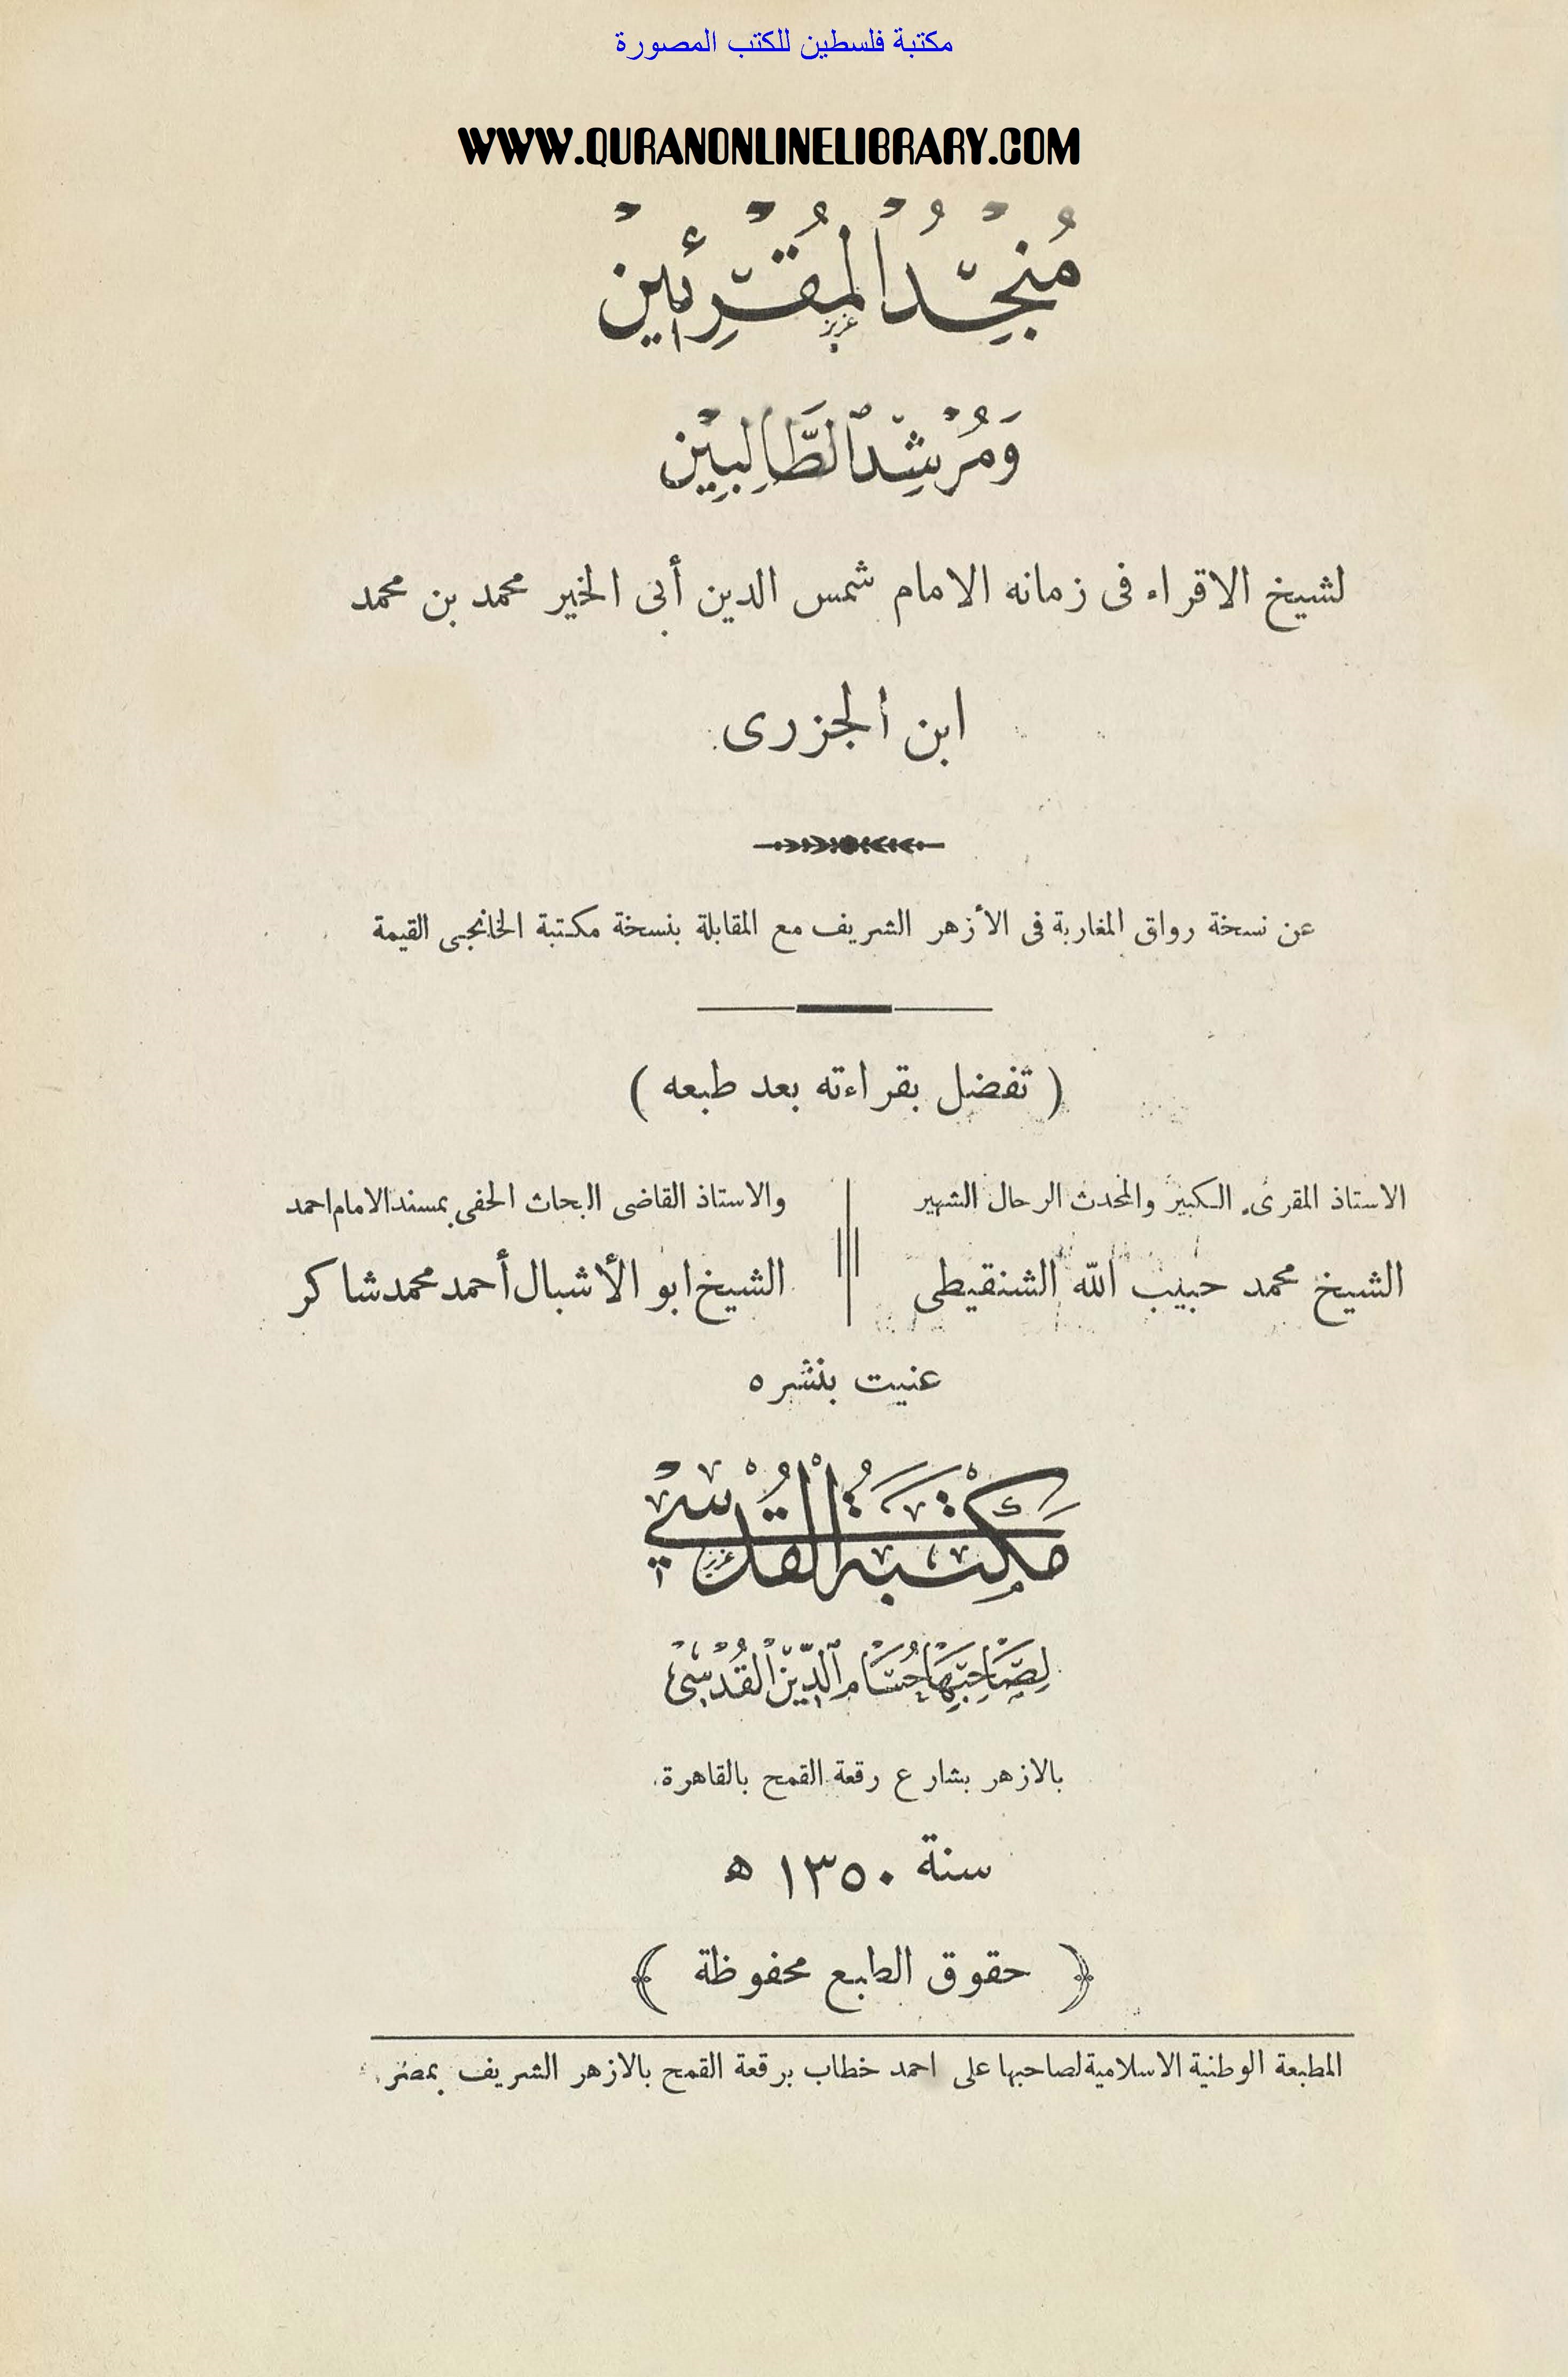 مكتبة فلسطين للكتب المصورة
WWW.QURANONLINELIBRARY.COM
مُنْجِدُ الْمُقْرِئِينْ
وَمُرْشِدُ الطَّالِبِيْنْ
لشيخ الاقراء فى زمانه الامام شمس الدين أبى الخير محمد بن محمد
ابن الجزرى
عن نسخة رواق المغاربة فى الأزهر الشريف مع المقابلة بنسخة مكتبة الخانجى القيمة
( تفضل بقراءته بعد طبعه )
الاستاذ المقرىء الكبير والمحدث الرحال الشهير
الشيخ محمد حبيب الله الشنقيطى
والاستاذ القاضى البحاث الحفى بمسند الامام احمد
الشيخ ابو الأشبال أحمد محمد شاكر
عنيت بنشره
مَكْتَبَةُ الْقُدْسِي
لِصَاحِبِهَا حُسَام الدِّيْن القُدْسِى
بالازهر بشارع رقعة القمح بالقاهرة
سنة ١٣٥٠ ه
﴿ حقوق الطبع محفوظة ﴾
المطبعة الوطنية الاسلامية لصاحبها على احمد خطاب برقعة القمح بالازهر الشريف بمصر